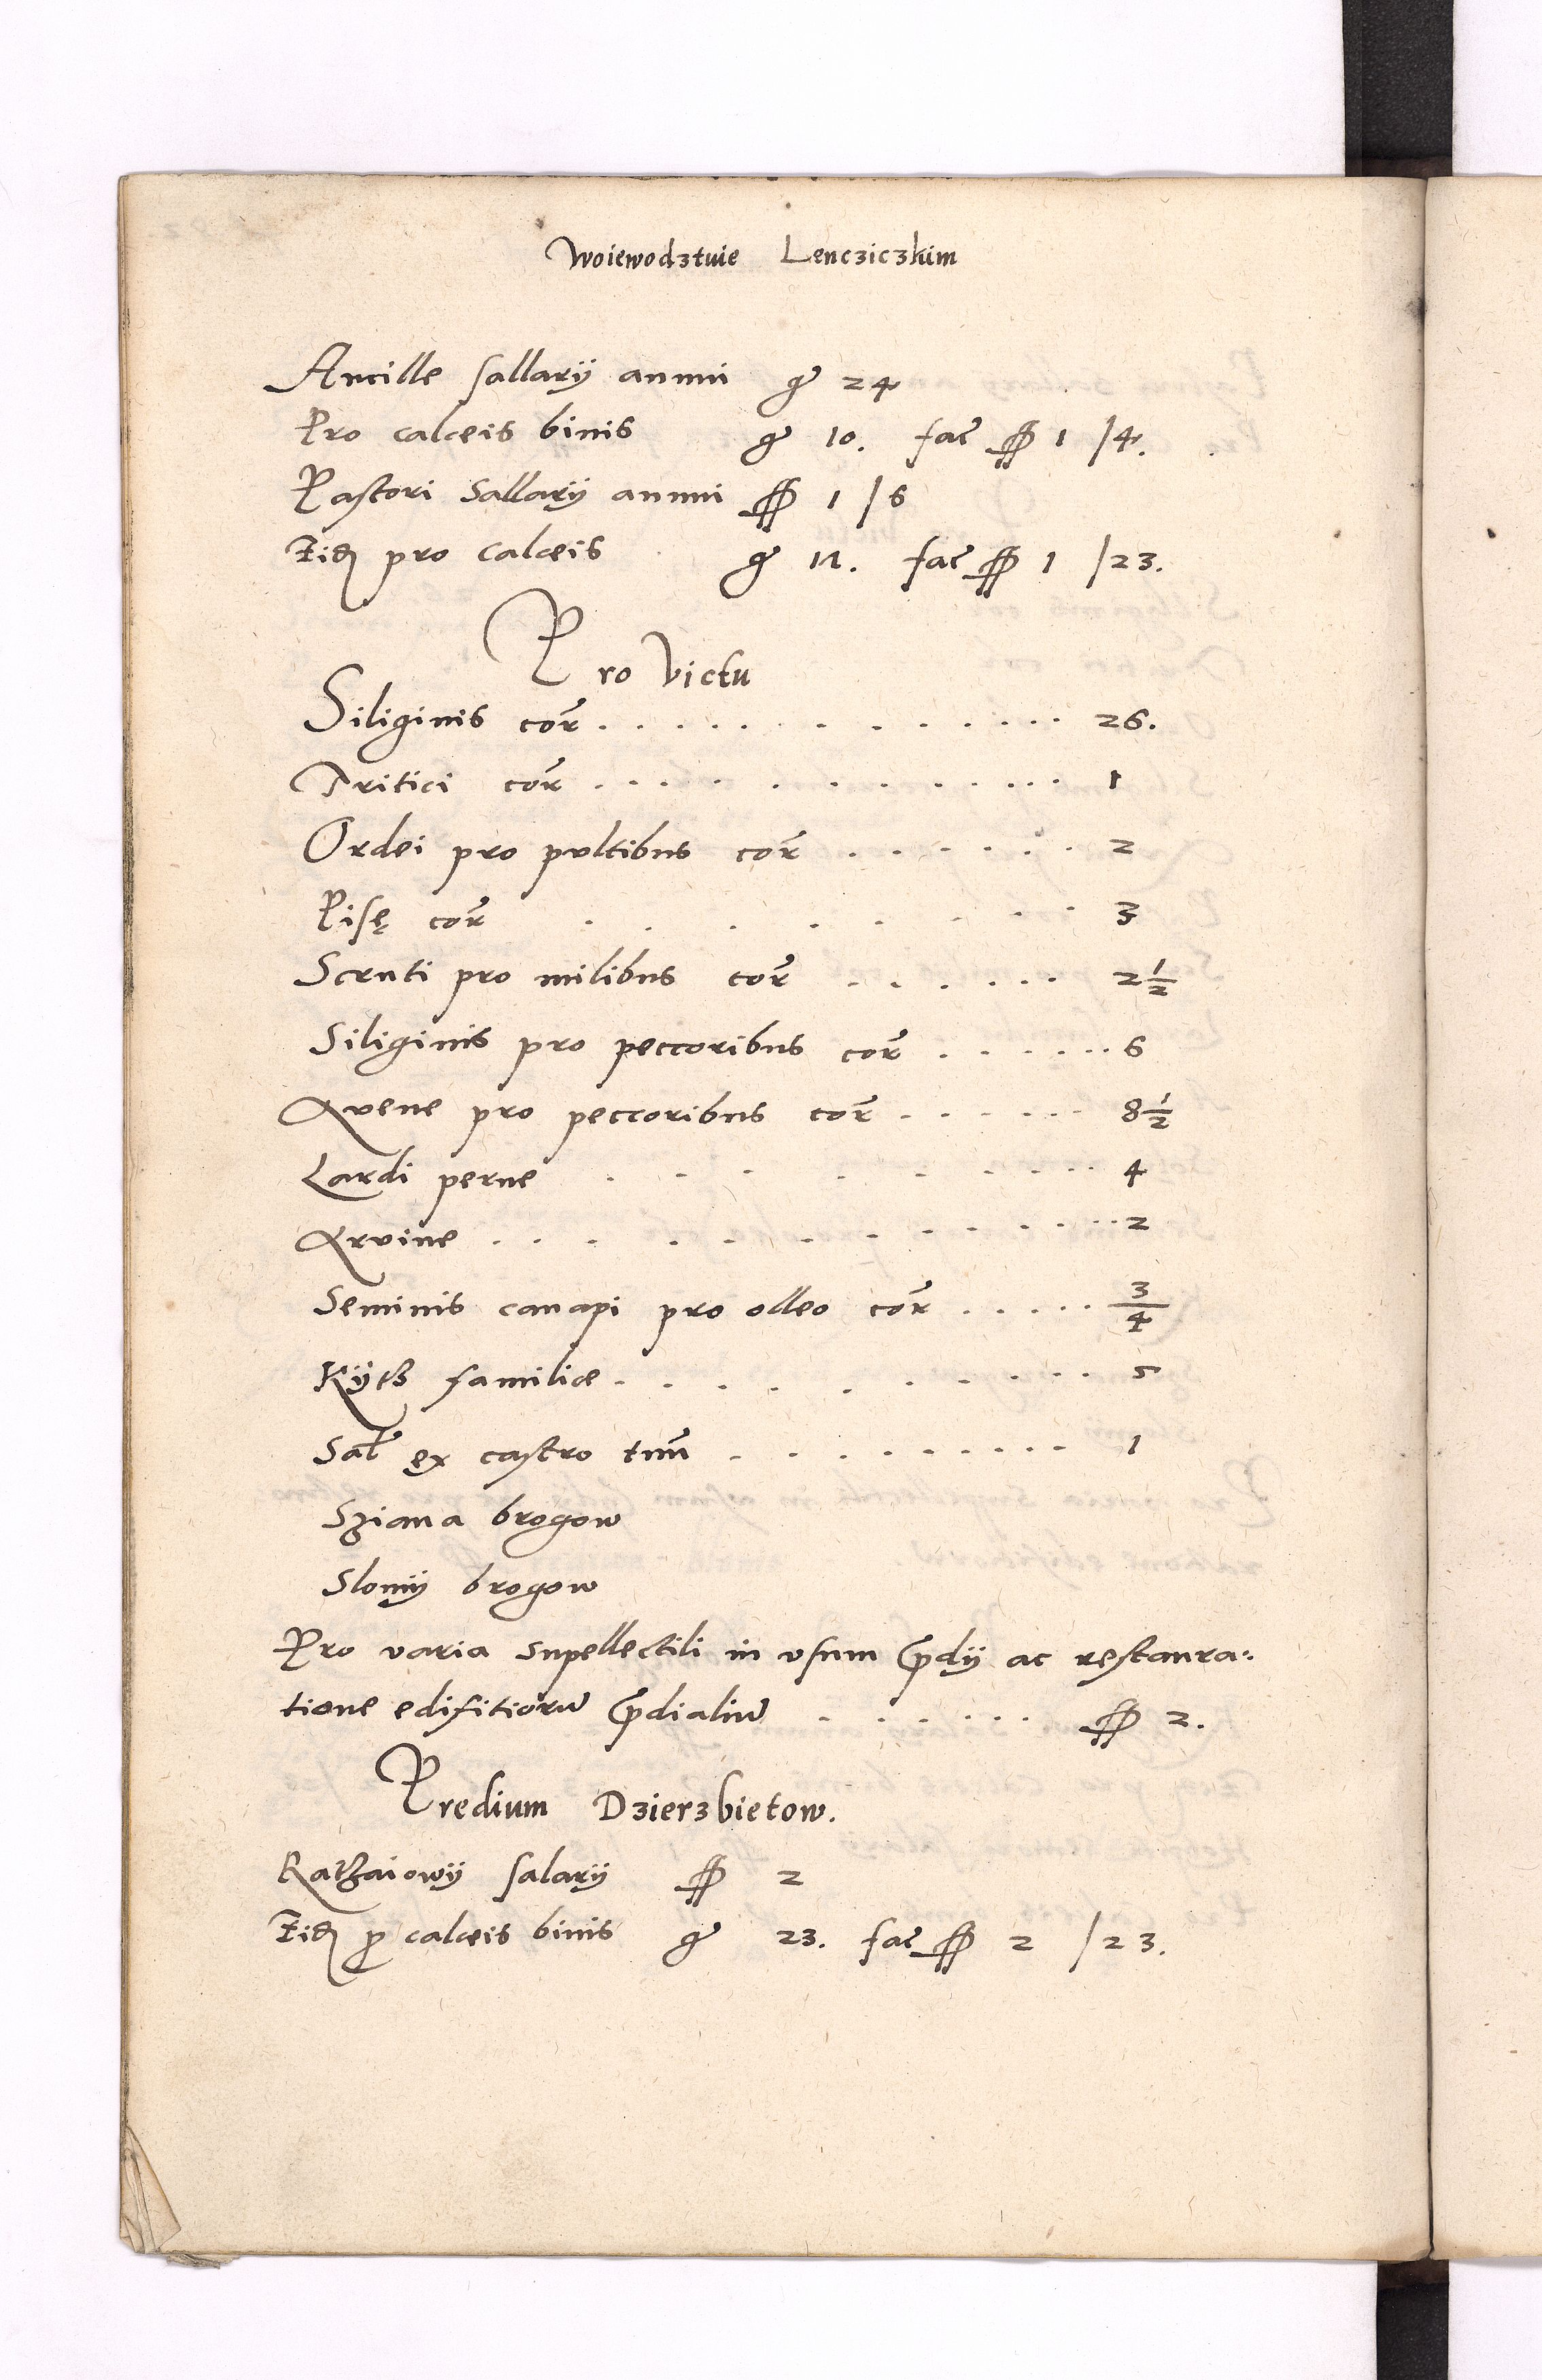 Woiewodztwie Lencziczkim
Ancille sallarÿ annui gͬ 24
Pro calceis binis gͬ 10. fac̄ ꝑ 1 /4.
Pastori Sallarÿ annui ꝑ 1 /6
Eidē pro calceis gͬ 17. fac̄ ꝑ 1 /23.
Pro victu
Siliginis cor̄ . . . . . . . . . . 26.
Tritici cor̄ . . . . . . . . . . 1
Ordei pro pultibus cor̄ . . . . . . 2
Pisę cor̄ . . . . . . . . 3
Scruti pro milibus cor̄ . . . . . . 2 1/2
Siliginis pro peccoribus cor̄ . . . . . . 6
Avene pro peccoribus cor̄ . . . . . . 8 1/2
Lardi perne . . . . . . . . 4
Arvine . . . . . . . . . . 2
Seminis canapi pro olleo cor̄ . . . . . 3/4
Kÿtz familiæ . . . . . . . . . 5
Sal̄ ex castro tun̄ . . . . . . . . . 1
Sziana brogow
Slomÿ brogow
Pro varia supellectili in vsum p̄dÿ ac restaura:
tione edifitioru̅ p̄dialiu̅ . . . . . . ꝑ 2.
Predium Dzierzbietow.
Ratzaiowÿ salarÿ ꝑ 2
Eidē ꝓ calceis binis gͬ 23. fac̄ ꝑ 2 /23.